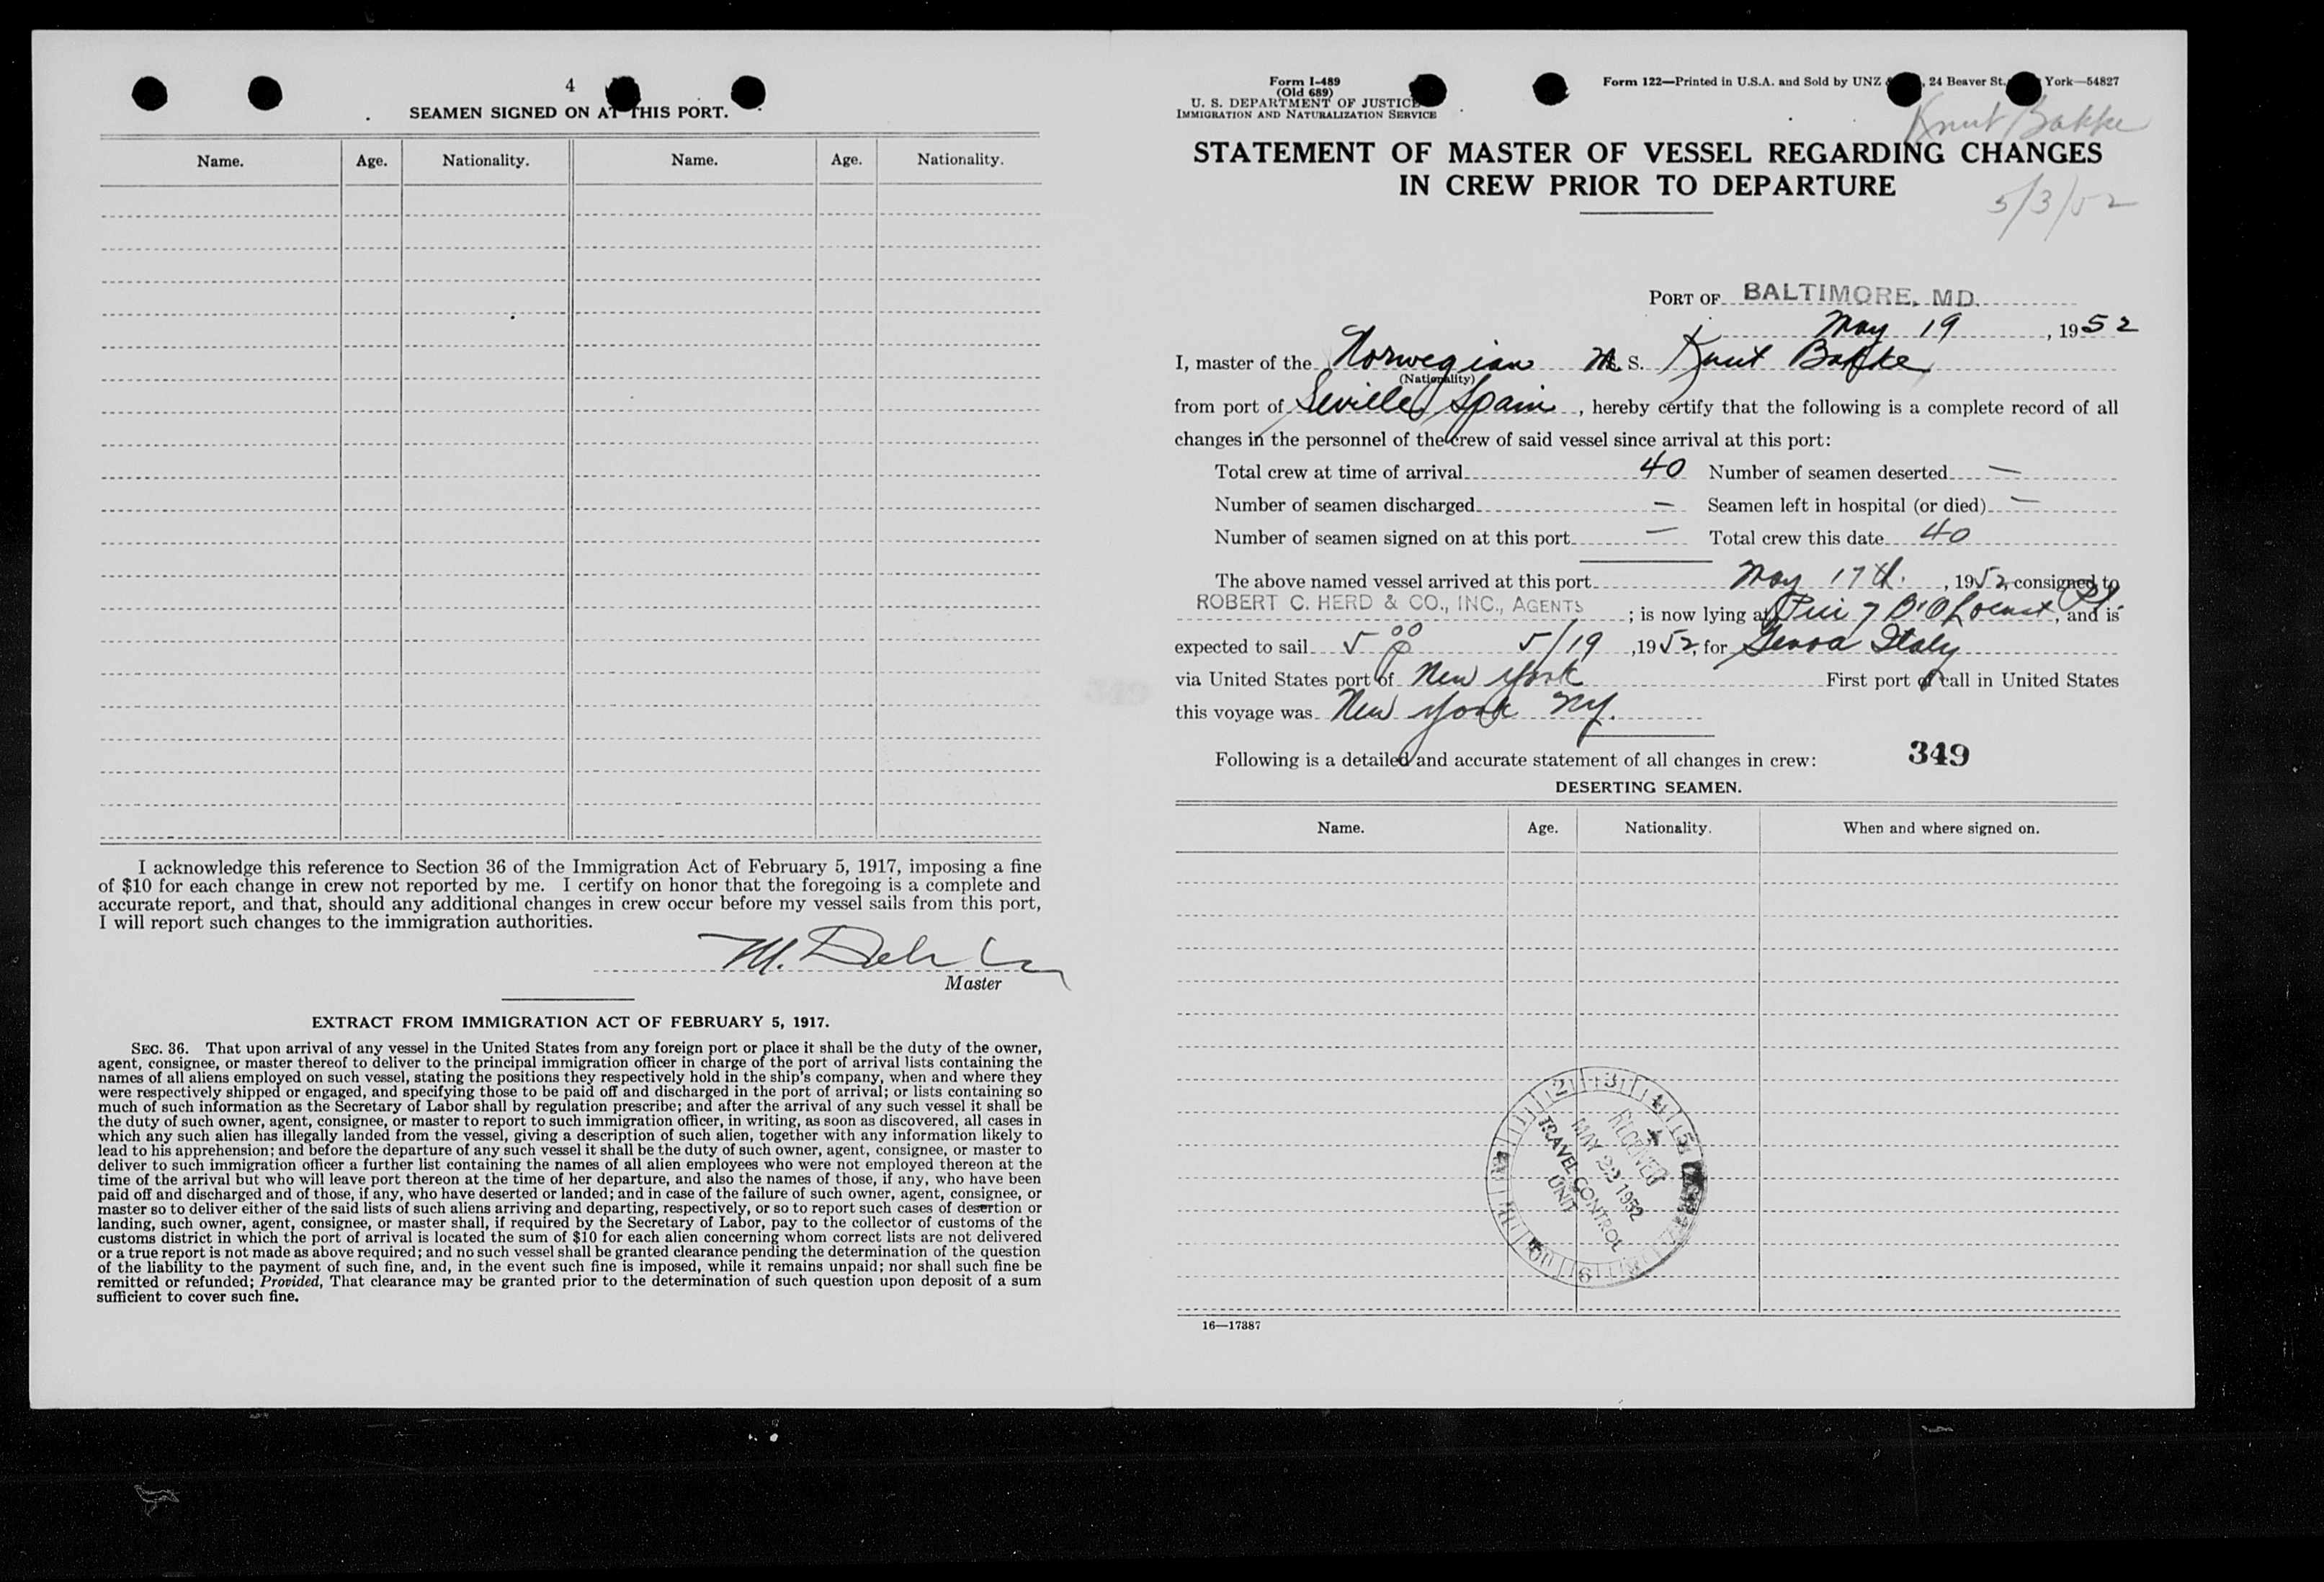 4
SEAMEN SIGNED ON AT THIS PORT.
Name. Age. Nationality. Name. Age. Nationality.
I acknowledge this reference to Section 36 of the Immigration Act of February 5, 1917, imposing a fine
of $10 for each change in crew not reported by me. I certify on honor that the foregoing is a complete and
accurate report, and that, should any additional changes in crew occur before my vessel sails from this port,
I will report such changes to the immigration authorities.
M.
Master
EXTRACT FROM IMMIGRATION ACT OF FEBRUARY 5, 1917.
SEC. 36. That upon arrival of any vessel in the United States from any foreign port or place it shall be the duty of the owner,
agent, consignee, or master thereof to deliver to the principal immigration officer in charge of the port of arrival lists containing the
names of all aliens employed on such vessel, stating the positions they respectively hold in the ship's company, when and where they
were respectively shipped or engaged, and specifying those to be paid off and discharged in the port of arrival; or lists containing so
much of such information as the Secretary of Labor shall by regulation prescribe; and after the arrival of any such vessel it shall be
the duty of such owner, agent, consignee, or master to report to such immigration officer, in writing, as soon as discovered, all cases in
which any such alien has illegally landed from the vessel, giving a description of such alien, together with any information likely to
lead to his apprehension; and before the departure of any such vessel it shall be the duty of such owner, agent, consignee, or master to
deliver to such immigration officer a further list containing the names of all alien employees who were not employed thereon at the
time of the arrival but who will leave port thereon at the time of her departure, and also the names of those, if any, who have been
paid off and discharged and of those, if any, who have deserted or landed; and in case of the failure of such owner, agent, consignee, or
master so to deliver either of the said lists of such aliens arriving and departing, respectively, or so to report such cases of desertion or
landing, such owner, agent, consignee, or master shall, if required by the Secretary of Labor, pay to the collector of customs of the
customs district in which the port of arrival is located the sum of $10 for each alien concerning whom correct lists are not delivered
or a true report is not made as above required; and no such vessel shall be granted clearance pending the determination of the question
of the liability to the payment of such fine, and, in the event such fine is imposed, while it remains unpaid; nor shall such fine be
remitted or refunded; Provided, That clearance may be granted prior to the determination of such question upon deposit of a sum
sufficient to cover such fine.
Form I-489
(Old 689)
U. S. DEPARTMENT OF JUSTICE
IMMIGRATION AND NATURALIZATION SERVICE
Form 122—Printed in U.S.A. and Sold by UNZ , 24 Beaver St. York—54827
Knut Bakke
STATEMENT OF MASTER OF VESSEL REGARDING CHANGES
IN CREW PRIOR TO DEPARTURE
5/3/52
PORT OF BALTIMORE, MD.
May 19, 1952
I, master of the Norwegian M. S. Knut Bakke
(Nationality)
from port of Seville, Spain, hereby certify that the following is a complete record of all
changes in the personnel of the crew of said vessel since arrival at this port:
Total crew at time of arrival 40 Number of seamen deserted —
Number of seamen discharged — Seamen left in hospital (or died) —
Number of seamen signed on at this port — Total crew this date 40
The above named vessel arrived at this port May 17th., 1952, consigned to
ROBERT C. HERD & CO., INC., AGENTS; is now lying at Pier 7 B&O Locust Pt, and is
expected to sail 5 00 P 5/19, 1952, for Genoa Italy
via United States port of New York First port of call in United States
this voyage was New York NY.
Following is a detailed and accurate statement of all changes in crew: 349
DESERTING SEAMEN.
Name. Age. Nationality. When and where signed on.
RECEIVED
MAY 22 1952
TRAVEL CONTROL
UNIT
16—17387